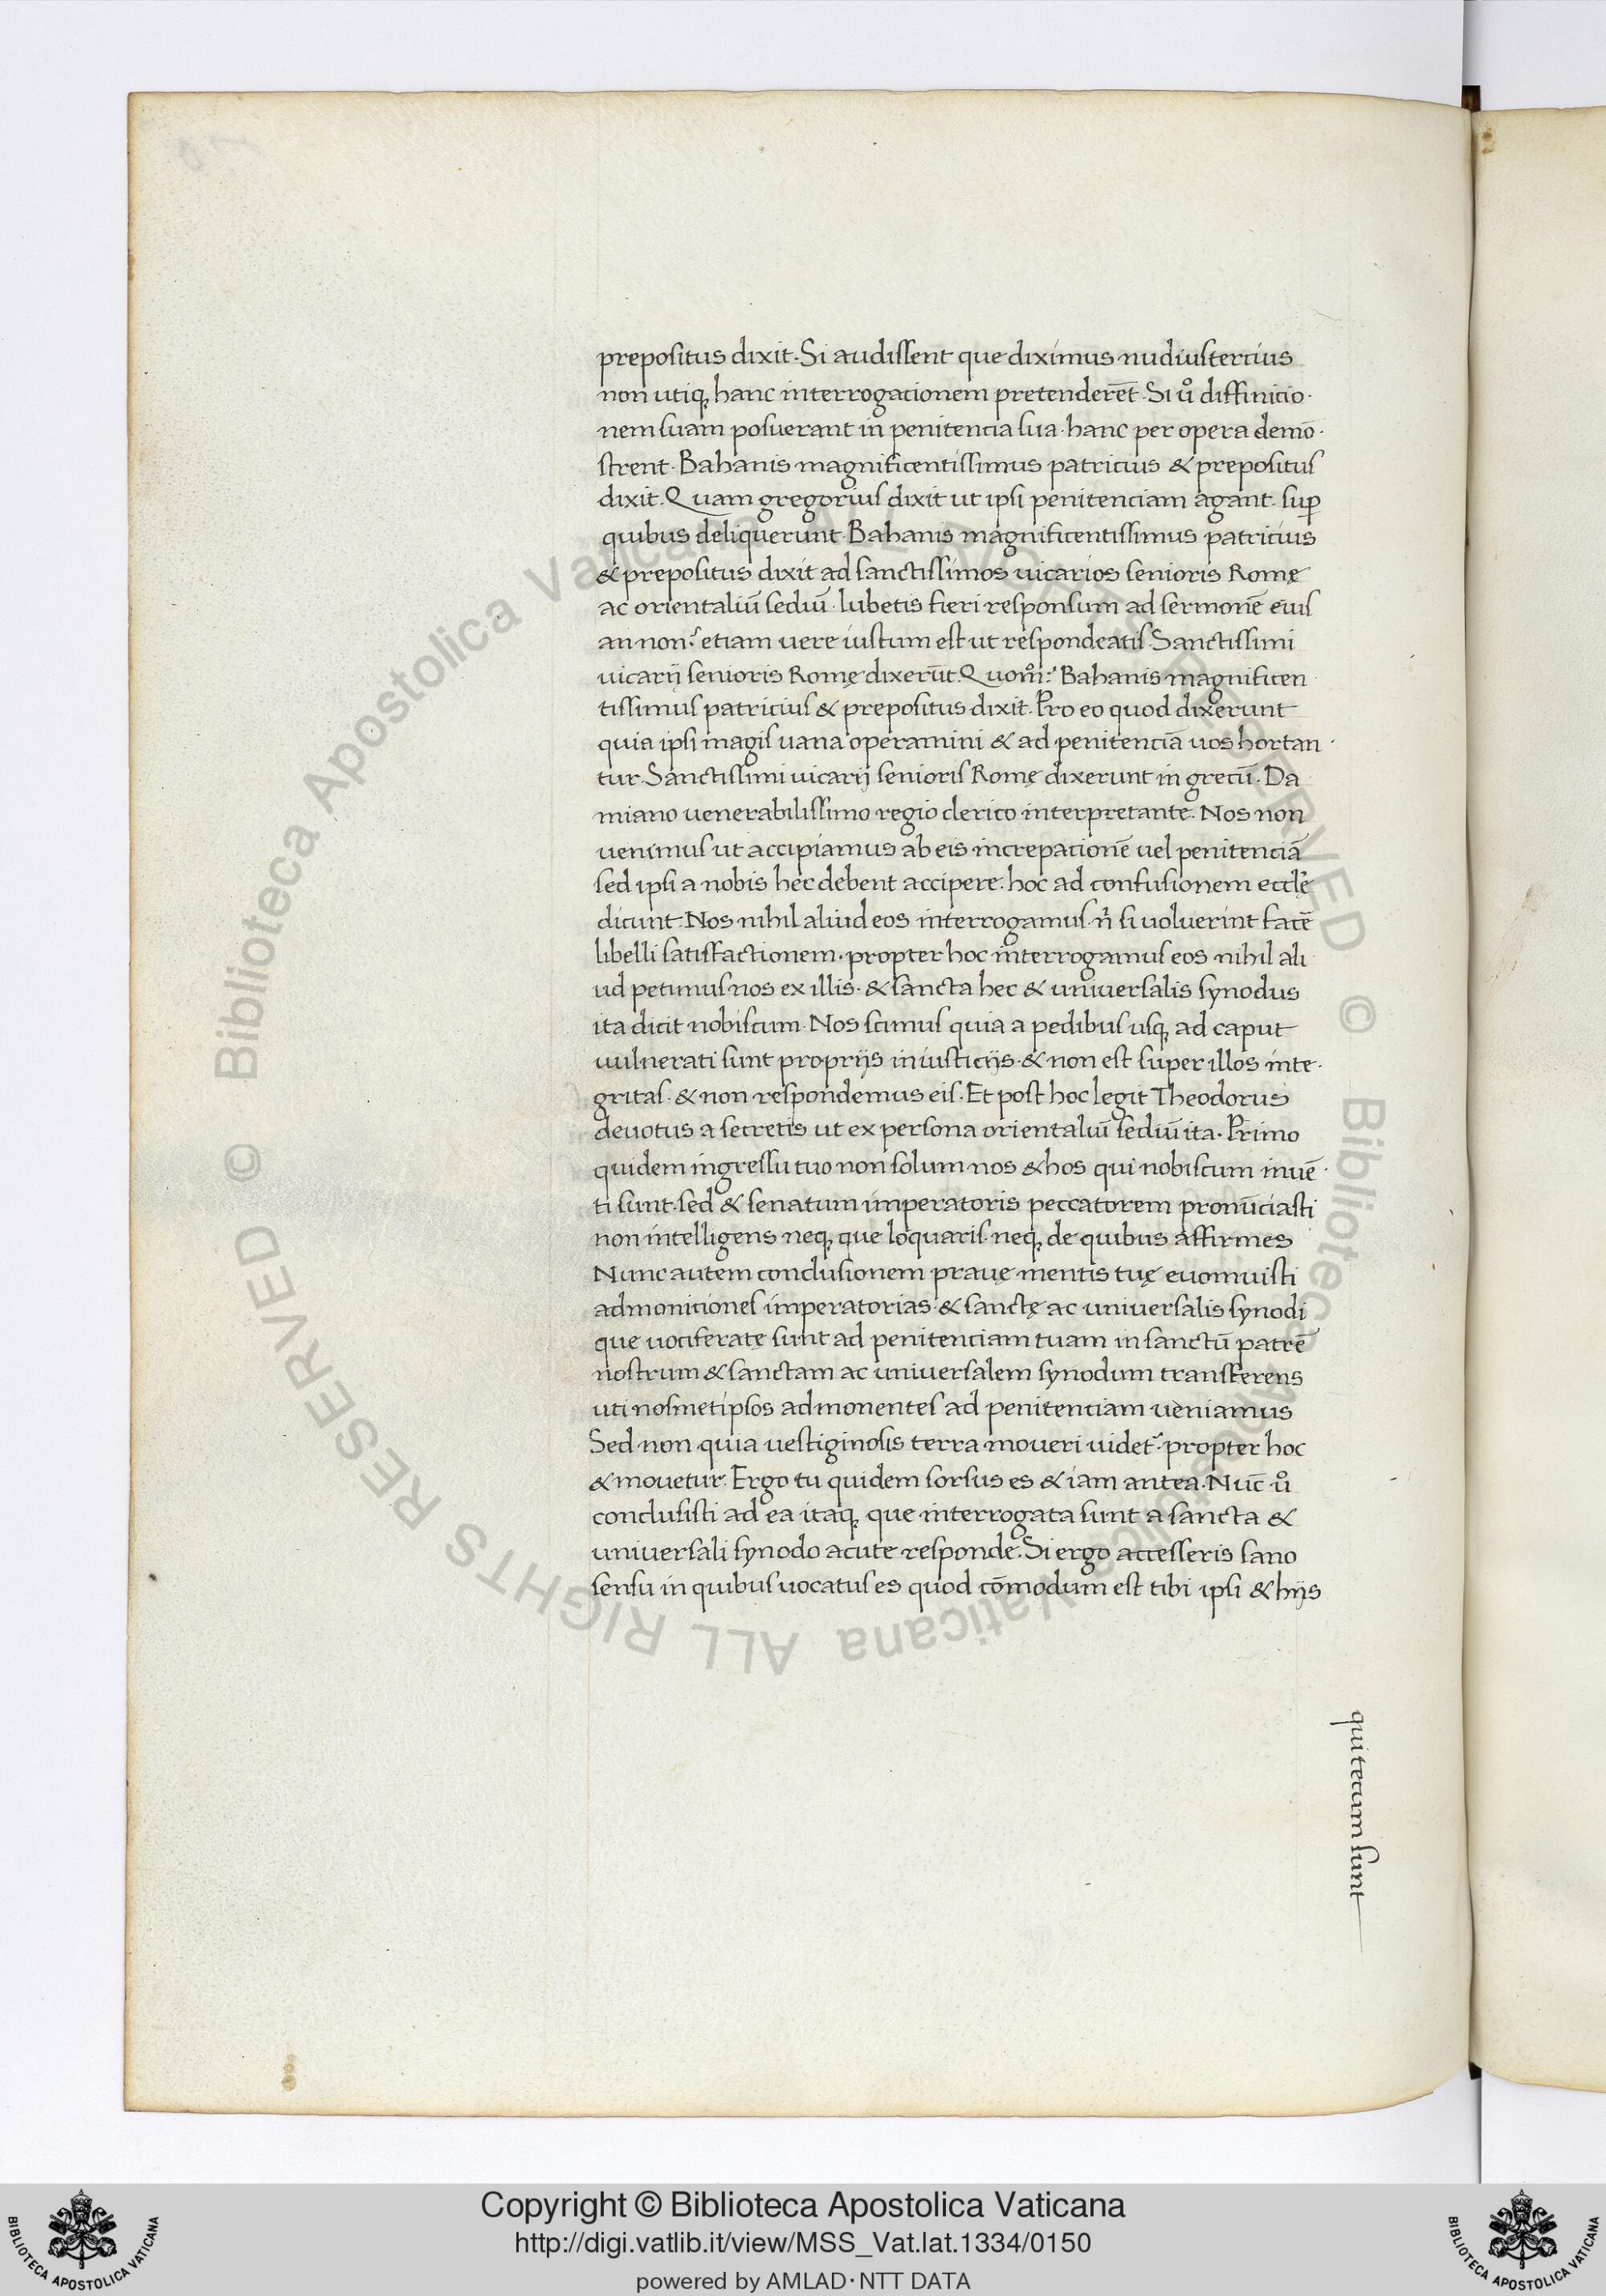 prepositus dixit. Si audissent que diximus nudiustercius
non utiq; hanc interrogationem pretenderēt. Si ůo diffinitio
nem suam posuerant in penitencia sua. hanc per opera demō
strent. Bahanis magnificentissimus patricius & prepositus
dixit. Quam gregorius dixit ut ipsi penitenciam agant. sup̄
quibus deliquerunt. Bahanis magnificentissimus patricius
& prepositus dixit ad sanctissimos uicarios senioris Romę
ac orientaliū sediū. lubetis fieri responsum ad sermonē eius
an non? etiam uere iustum est ut respondeatis. Sanctissimi
uicarij senioris Romę dixerūt. Quom̊? Bahanis magnificen
tissimus patricius & prepositus dixit. Pro eo quod dixerunt
quia ipsi magis uana operamini & ad penitenciā uos hortan
tur. Sanctissimi uicarij senioris Romę dixerunt in grecū. Da
miano uenerabilissimo regio clerico interpretante. Nos non
uenimus ut accipiamus ab eis increpationē uel penitenciā
sed ipsi a nobis hec debent accipere. hoc ad confusionem ecclę
dicunt. Nos nihil aliud eos interrogamus. n̄ si uoluerint facē
libelli satisfactionem. propter hoc interrogamus eos nihil ali
ud petimus nos ex illis. & sancta hec & uniuersalis synodus
ita dicit nobiscum. Nos scimus quia a pedibus usq; ad caput
uulnerati sunt proprijs iniusticijs. & non est super illos inte
gritas. & non respondemus eis. Et post hoc legit Theodorus
deuotus a secretis ut ex persona orientaliū sediū ita. Primo
quidem ingressu tuo non solum nos & hos qui nobiscum inuē
ti sunt. sed & senatum imperatoris peccatorem pronūciasti
non intelligens neq; que loquaris. neq; de quibus affirmes
Nunc autem conclusionem prauę mentis tuę euomuisti
admonitiones imperatorias. & sanctę ac uniuersalis synodi
que uociferatę sunt ad penitenciam tuam in sanctū patrē
nostrum & sanctam ac uniuersalem synodum transferens
uti nosmetipsos admonentes ad penitentiam ueniamus
Sed non quia uestiginosis terra moueri uidet᷑. propter hoc
& mouetur. Ergo tu quidem sorsus es & iam antea. Nūc ůo
conclusisti ad ea itaq; que interrogata sunt a sancta &
uniuersali synodo acute responde. Si ergo accesseris sano
sensu in quibus uocatus es quod cōmodum est tibi ipsi & hijs
qui tecum sunt
Copyright © Biblioteca Apostolica Vaticana
http://digi.vatlib.it/view/MSS_Vat.lat.1334/0150
powered by AMLAD·NTT DATA